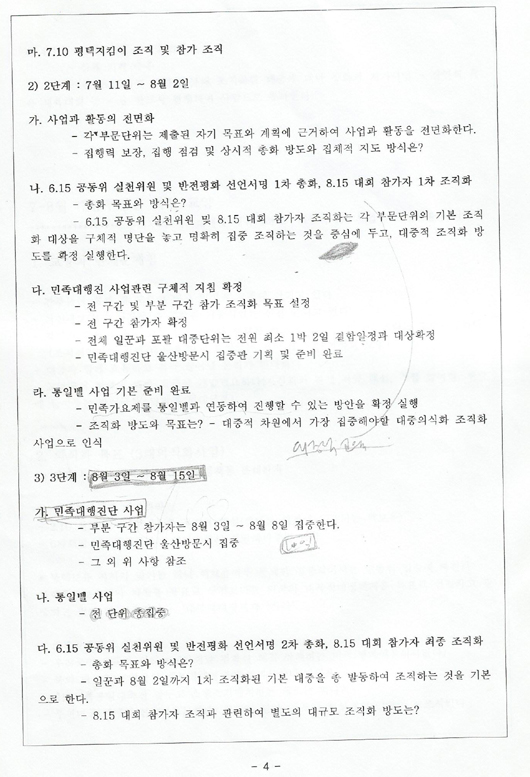 마. 7.10 평택지킴이 조직 및 참가 조직
2) 2단계 : 7월 11일 ~ 8월 2일
가. 사업과 활동의 전면화
- 각 부문단위는 제출된 자기 목표와 계획에 근거하여 사업과 활동을 전면화한다.
- 집행력 보장, 집행 점검 및 상시적 총화 방도와 집체적 지도 방식은?
나. 6.15 공동위 실천위원 및 반전평화 선언서명 1차 총화, 8.15 대회 참가자 1차 조직화
- 총화 목표와 방식은?
- 6.15 공동위 실천위원 및 8.15 대회 참가자 조직화는 각 부문단위의 기본 조직
화 대상을 구체적 명단을 놓고 명확히 집중 조직하는 것을 중심에 두고, 대중적 조직화 방
도를 확정 실행한다.
다. 민족대행진 사업관련 구체적 지침 확정
- 전 구간 및 부분 구간 참가 조직화 목표 설정
- 전 구간 참가자 확정
- 전체 일꾼과 포괄 대중단위는 전원 최소 1박 2일 결합일정과 대상확정
- 민족대행진단 울산방문시 집중판 기획 및 준비 완료
라. 통일벨 사업 기본 준비 완료
- 민족가요제를 통일벨과 연동하여 진행할 수 있는 방안을 확정 실행
- 조직화 방도와 목표는? - 대중적 차원에서 가장 집중해야할 대중의식화 조직화
사업으로 인식
3) 3단계 : 8월 3일 ~ 8월 15일
가. 민족대행진단 사업
- 부분 구간 참가자는 8월 3일 ~ 8월 8일 집중한다.
- 민족대행진단 울산방문시 집중
- 그 외 위 사항 참조
나. 통일벨 사업
- 전 단위 총집중
다. 6.15 공동위 실천위원 및 반전평화 선언서명 2차 총화, 8.15 대회 참가자 최종 조직화
- 총화 목표와 방식은?
- 일꾼과 8월 2일까지 1차 조직화된 기본 대중을 총 발동하여 조직하는 것을 기본
으로 한다.
- 8.15 대회 참가자 조직과 관련하여 별도의 대규모 조직화 방도는?
- 4 -